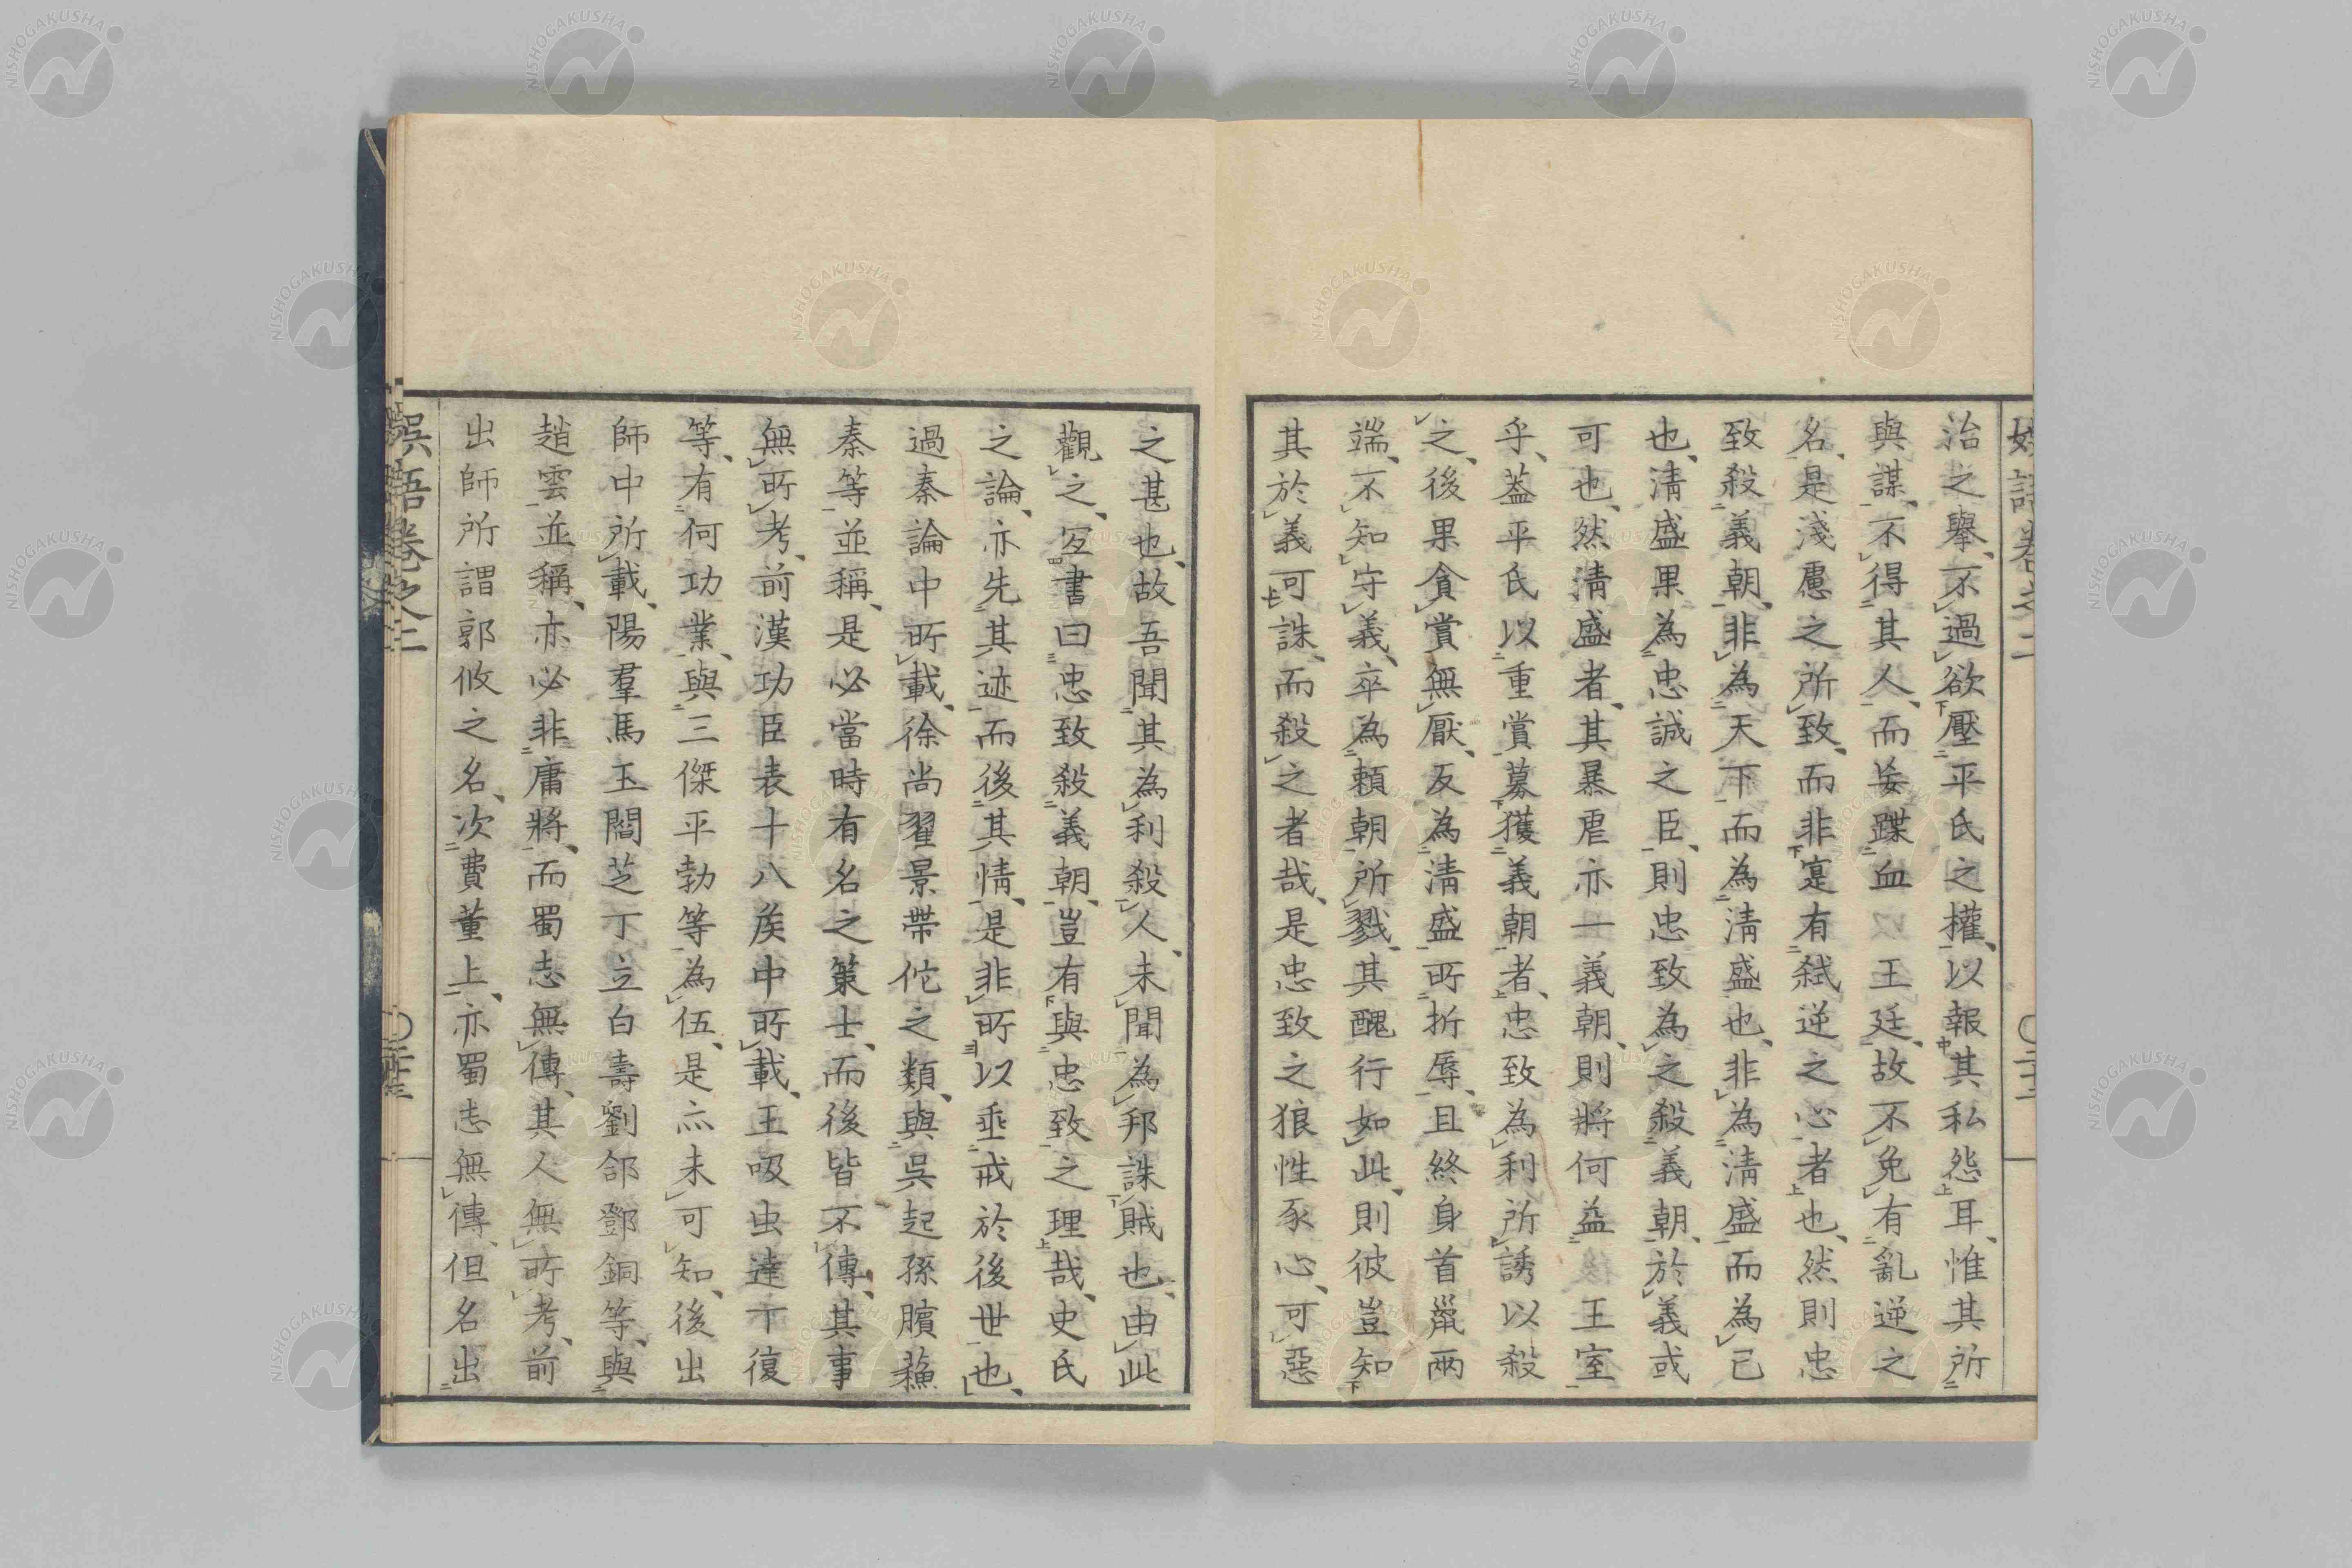 治之舉、不過欲壓平氏之權、以報其私怨耳、惟其所
與謀、不得其人、而妄蹀血王廷、故不免有亂逆之
名、是淺慮之所致、而非寔有弒逆之心者也、然則忠
致殺義朝、非為天下而為清盛也、非為清盛而為己
也、清盛果為忠誠之臣、則忠致為之殺義朝、於義或
可也、然清盛者、其暴虐亦一義朝、則將何益王室
乎、蓋平氏以重賞募獲義朝者、忠致為利所誘以殺
之、後果貪賞無厭、反為清盛所折辱、且終身首菑兩
端、不知守義、卒為賴朝所戮、其醜行如此、則彼豈知
其於義可誅、而殺之者哉、是忠致之狼性豕心、可惡
之甚也、故吾聞其為利殺人、未聞為邦誅賊也、由此
觀之、宜書曰忠致殺義朝、豈有與忠致之理哉、史氏
之論、亦先其迹而後其情、是非所以垂戒於後世也、
過秦論中所載、徐尚翟景帶佗之類、與吳起孫臏蘇
秦等並稱、是必當時有名之策士、而後皆不傳、其事
無所考、前漢功臣表十八侯中所載、王吸虫達下復
等、有何功業、與三傑平勃等為伍、是亦未可知、後出
師中所載、陽羣馬玉閻芝丁立白壽劉郃鄧銅等、與
趙雲並稱、亦必非庸將、而蜀志無傳、其人無所考、前
出師所謂郭攸之名、次費董上、亦蜀志無傳、但名出
娛語卷之二